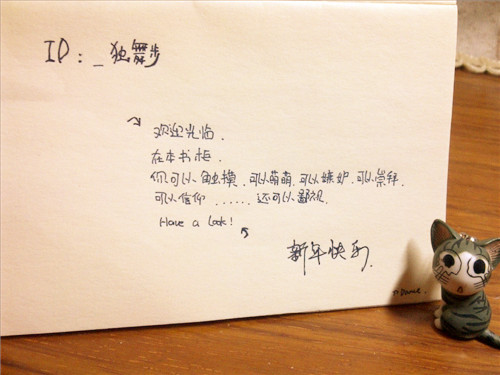 ID：_独舞步
欢迎光临.
在本书柜.
你可以触摸.可以萌萌.可以嫉妒.可以崇拜.
可以信仰......还可以鄙视.
Have a look!
新年快乐.